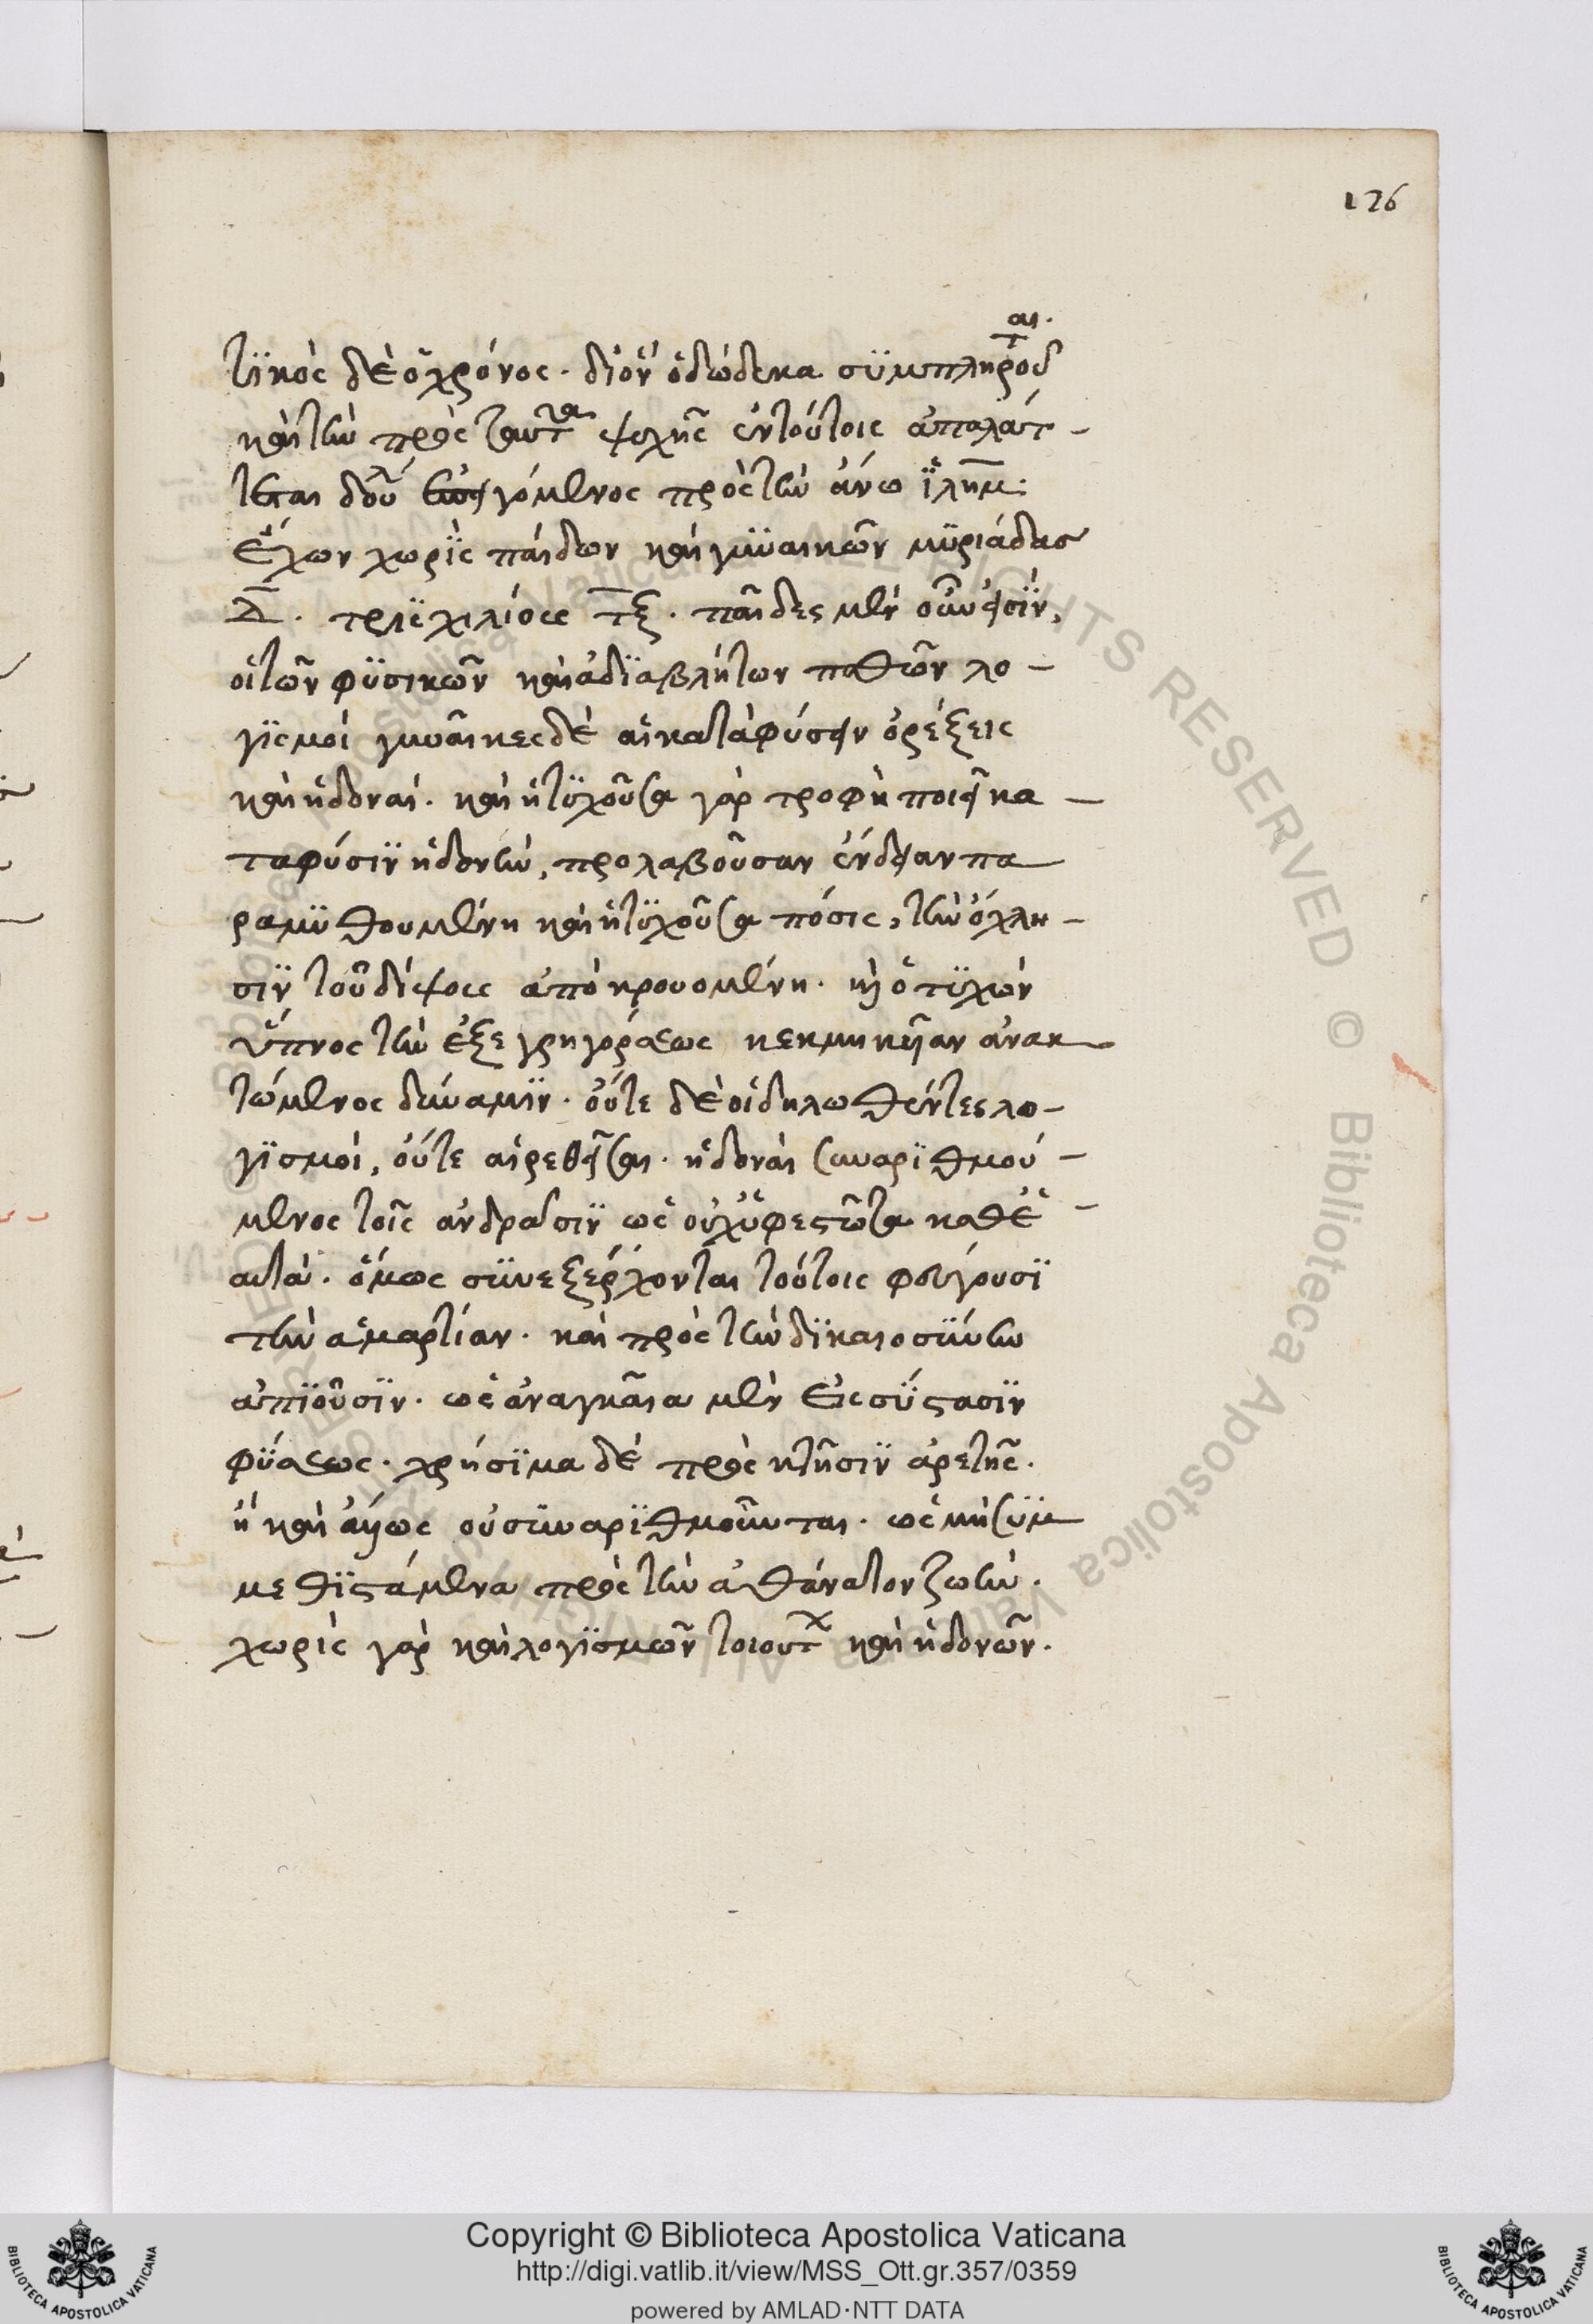 126
τϊκὸς δὲ ὁ χρόνος· δι' ὃν ὁ δώδεκα σϋμπληροῦται·
καὶ τὴν πρὸς ταῦτα ψυχῆς ἐν τούτοις ἀπαλάτ-
τεται δουλ γόμενος πρὸς τὴν ἄνω ϊλημ:
ἔχων χωρϊς παίδων καὶ γυναικῶν μϋριάδας
Δ. τρισχιλίους τξ. παῖδες μὲν οὖν εἰσϊν,
οἱ τῶν φϋσικῶν καὶ ἀδϊαβλήτων παθῶν λο-
γϊσμοί γυναῖκες δὲ αἱ κατὰ φύσιν ὀρέξεις
καὶ ἡδοναί. καὶ ἡ τϋχοῦσα γὰρ τροφὴ ποιεῖ κα-
τα φύσιν ἡδονὴν, προλαβοῦσαν ἔνδειαν πα
ραμϋθουμένη καὶ ἡ τϋχοῦσα πόσις, τὴν ὄχλη-
σϊν τοῦ δίψους ἀπὸκρουομένη. καὶ ὁ τϋχὼν
ὕπνος τὴν ἐξ ἐγρηγόρσεως κεκμηκῆαν ἀνακ
τώμενος δύναμϊν. οὔτε δὲ οἱ δηλωθέντες λο-
γϊσμοὶ, οὔτε αἱ ρεθεῖσαι. ἡδοναὶ συναρϊθμού-
μενος τοῖς ἀνδράσϊν ὡς οὐχ ὑφεστῶτα καθ' ἑ-
αυτά. ὅμως σϋνεξέρχονται τούτοις φεύγουσϊ
τὴν ἁμαρτίαν. καὶ πρὸς τὴν δϊκαιοσϋνην
ἀπϊοῦσϊν. ὡς ἀναγκαῖα μὲν εἰς σϋστασϊν
φϋσεως. χρήσϊμα δὲ πρὸς κτῆσϊν ἀρετῆς.
ἢ καὶ ἄλλως οὐ σϋναρϊθμοῦνται. ὡς μὴ σϋμ
μεθϊστάμενα πρὸς τὴν ἀθάνατον ζωήν.
χωρὶς γὰρ καὶ λογϊσμῶν τοιούτων καὶ ἡδονῶν.
ALL RIGHTS RESERVED © Biblioteca Apostolica Vaticana
Copyright © Biblioteca Apostolica Vaticana
http://digi.vatlib.it/view/MSS_Ott.gr.357/0359
powered by AMLAD·NTT DATA
BIBLIOTECA APOSTOLICA VATICANA
BIBLIOTECA APOSTOLICA VATICANA